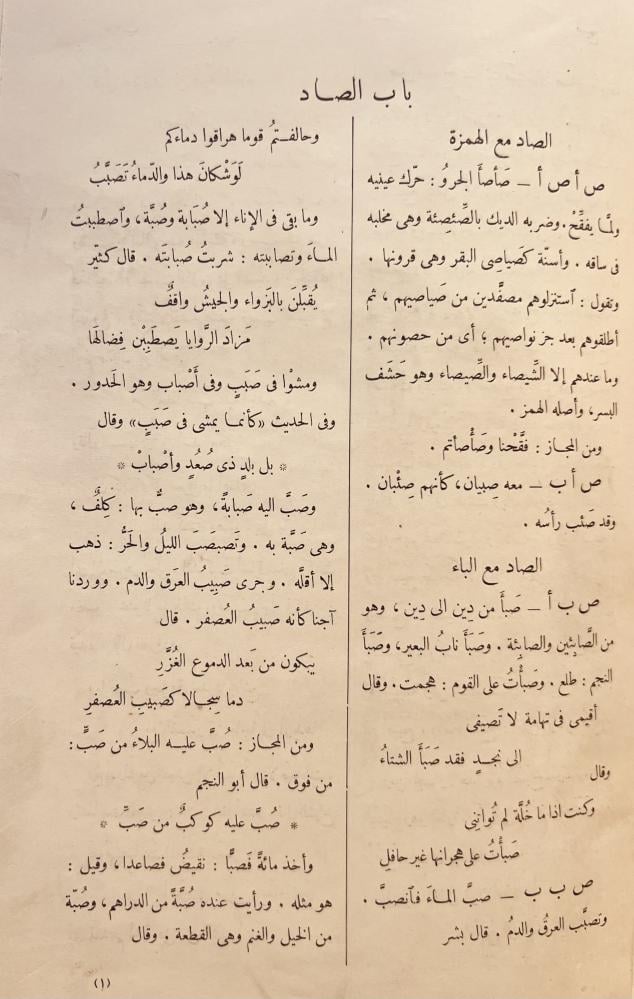 باب الصاد
الصاد مع الهمزة
ص أ ص أ — صَأصَأَ الجروُ : حرّك عينيه
ولمَّا يفقِّحْ. وضربه الديك بالصِّئصِئة وهى مخلبه
فى ساقه . وأسنّة كصَياصِى البقر وهى قرونها .
وتقول : آستنزلوهم مصفَّدين من صَياصيهم ، ثم
أطلقوهم بعد جز نواصيهم ؛ أى من حصونهم .
وما عندهم إلا الشِّيصاء والصِّيصاء وهو حَشَف
البسر، وأصله الهمز .
ومن المجاز : فقَّحْنا وصَأْصَأتم .
ص أ ب — معه صِبيان، كأنهم صِئْبان .
وقد صَئب رأسُه .
الصاد مع الباء
ص ب أ — صَبأَ من دِين الى دِين ، وهو
من الصَّابِئين والصابِئة . وصَبَأَ نابُ البعير، وصَبَأَ
النجم : طلع . وصَبأْتُ على القوم : هجمت . وقال
أقيمى فى تهامة لا تَصيفى
الى نجدٍ فقد صَبَأَ الشتاءُ
وقال
وكنت اذا ما خُلَّة لم تُواتِنِى
صَبأْتُ على هجرانها غير حافلِ
ص ب ب — صبَّ المـاءَ فآنصبَّ .
وتصبَّب العرقُ والدمُ . قال بشر
وحالفـتمُ قوما هراقوا دماءكم
لَوَشْكانَ هذا والدّماءُ تَصَبَّبُ
وما بقى فى الإناء إلا صُبَابة وصُبَّة، وآصطببتُ
المـاءَ وتصاببته : شربتُ صُبابتَه . قال كثيّر
يُقبِّلنَ بالبَزواء والجيشُ واقفٌ
مَزادَ الرَّوايا يَصطَبِبْن فِضالَهَا
ومشوْا فى صَبَبٍ وفى أَصْباب وهو الحَدور .
وفى الحديث «كأنمـا يمشى فى صَبَبٍ» وقال
* بل بلدٍ ذى صُعُدٍ وأصْبابْ *
وصَبَّ اليه صَبابةً، وهو صبٌّ بها : كَلِفٌ ،
وهى صَبَّة به . وتَصبصَبَ الليلُ والحَرُّ : ذهب
إلا أقلَّه . وجرى صَبِيبُ العَرَق والدم . ووردنا
آجنا كأنه صَبيبُ العُصفر . قال
يبكون من بَعد الدموع الغُزَّرِ
دما سِجـالا كصَبيبِ العُصفرِ
ومن المجـاز : صُبَّ عليـه البلاءُ من صَبٍّ :
من فوق . قال أبو النجم
* صُبَّ عليه كوكبٌ من صَبِّ *
وأخذ مائةً فَصبًّا : نقيضُ فصاعدا، وقيل :
هو مثله . ورأيت عنده صُبَّةً من الدراهم، وصُبّة
من الخيل والغنم وهى القطعة . وقال
(١)